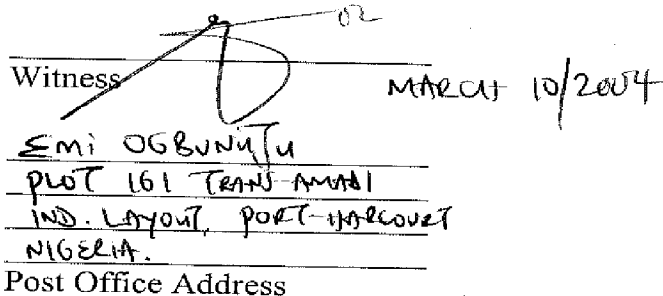 Witness MARCH 10/2004
PLOT 161 TRANS-AMADI
IND. LAYOUT, PORT-HARCOURT
NIGERIA.
Post Office Address